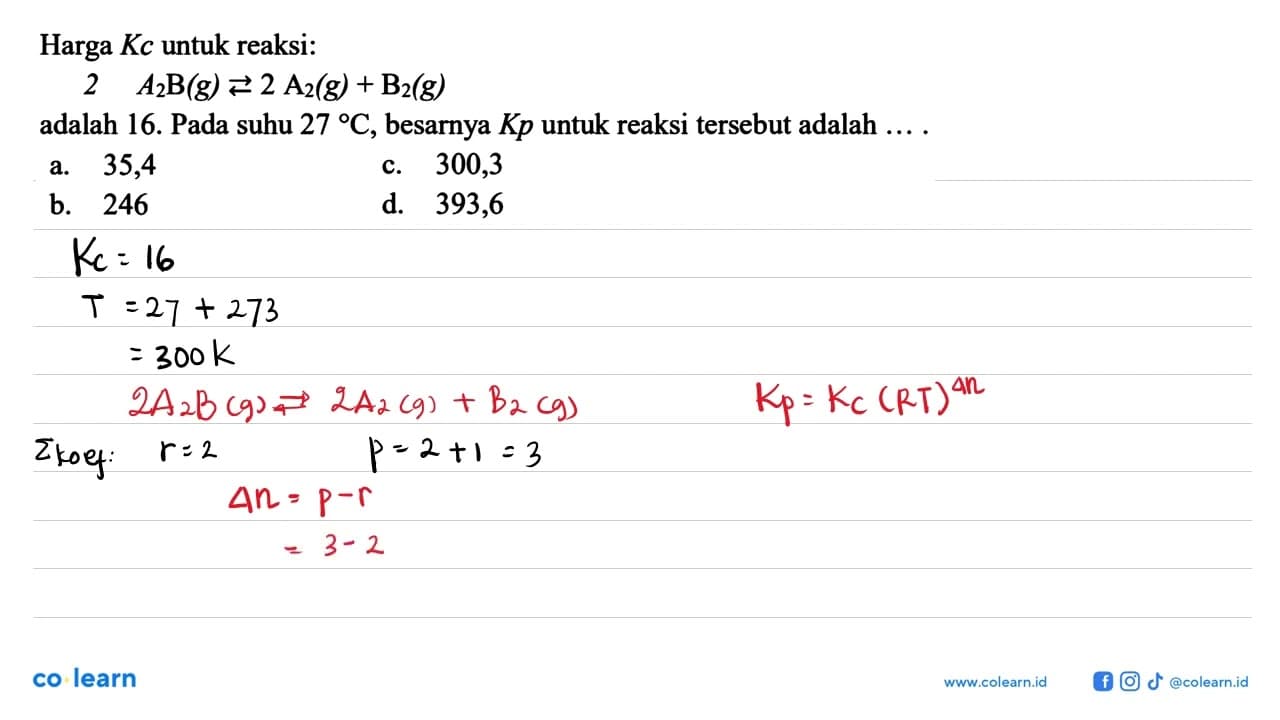 Harga Kc untuk reaksi:
2 A₂B(g) ⇄ 2 A₂(g) + B₂(g)
adalah 16. Pada suhu 27 °C, besarnya Kp untuk reaksi tersebut adalah ... .
a. 35,4 c. 300,3
b. 246 d. 393,6
Kc = 16
T = 27 + 273
= 300 K
2A₂B (g) ⇄ 2A₂ (g) + B₂ (g) Kp = Kc (RT)^Δn
Σkoef: r = 2 p = 2 + 1 = 3
Δn = p - r
= 3 - 2
co learn www.colearn.id @colearn.id